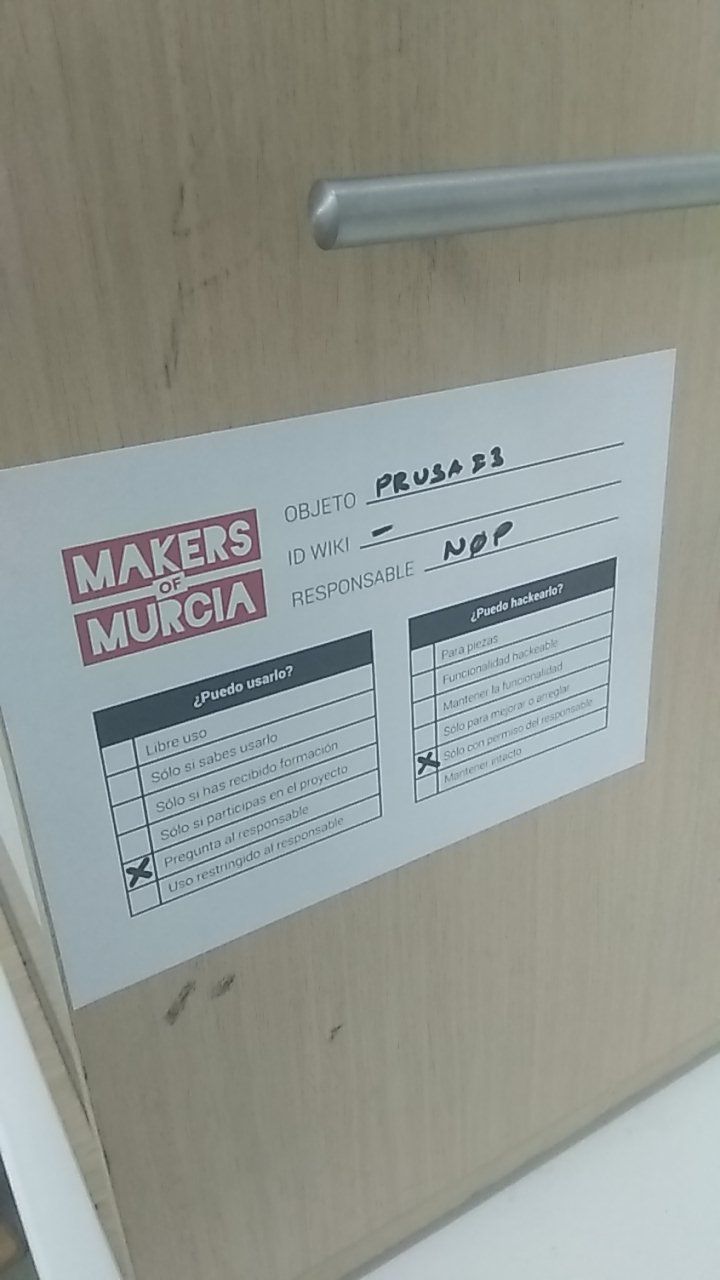 MAKERS
OF
MURCIA
OBJETO PRUSA E3
ID WIKI -
RESPONSABLE NØP
¿Puedo usarlo?
Libre uso
Sólo si sabes usarlo
Sólo si has recibido formación
Sólo si participas en el proyecto
X Pregunta al responsable
Uso restringido al responsable
¿Puedo hackearlo?
Para piezas
Funcionalidad hackeable
Mantener la funcionalidad
Sólo para mejorar o arreglar
X Sólo con permiso del responsable
Mantener intacto